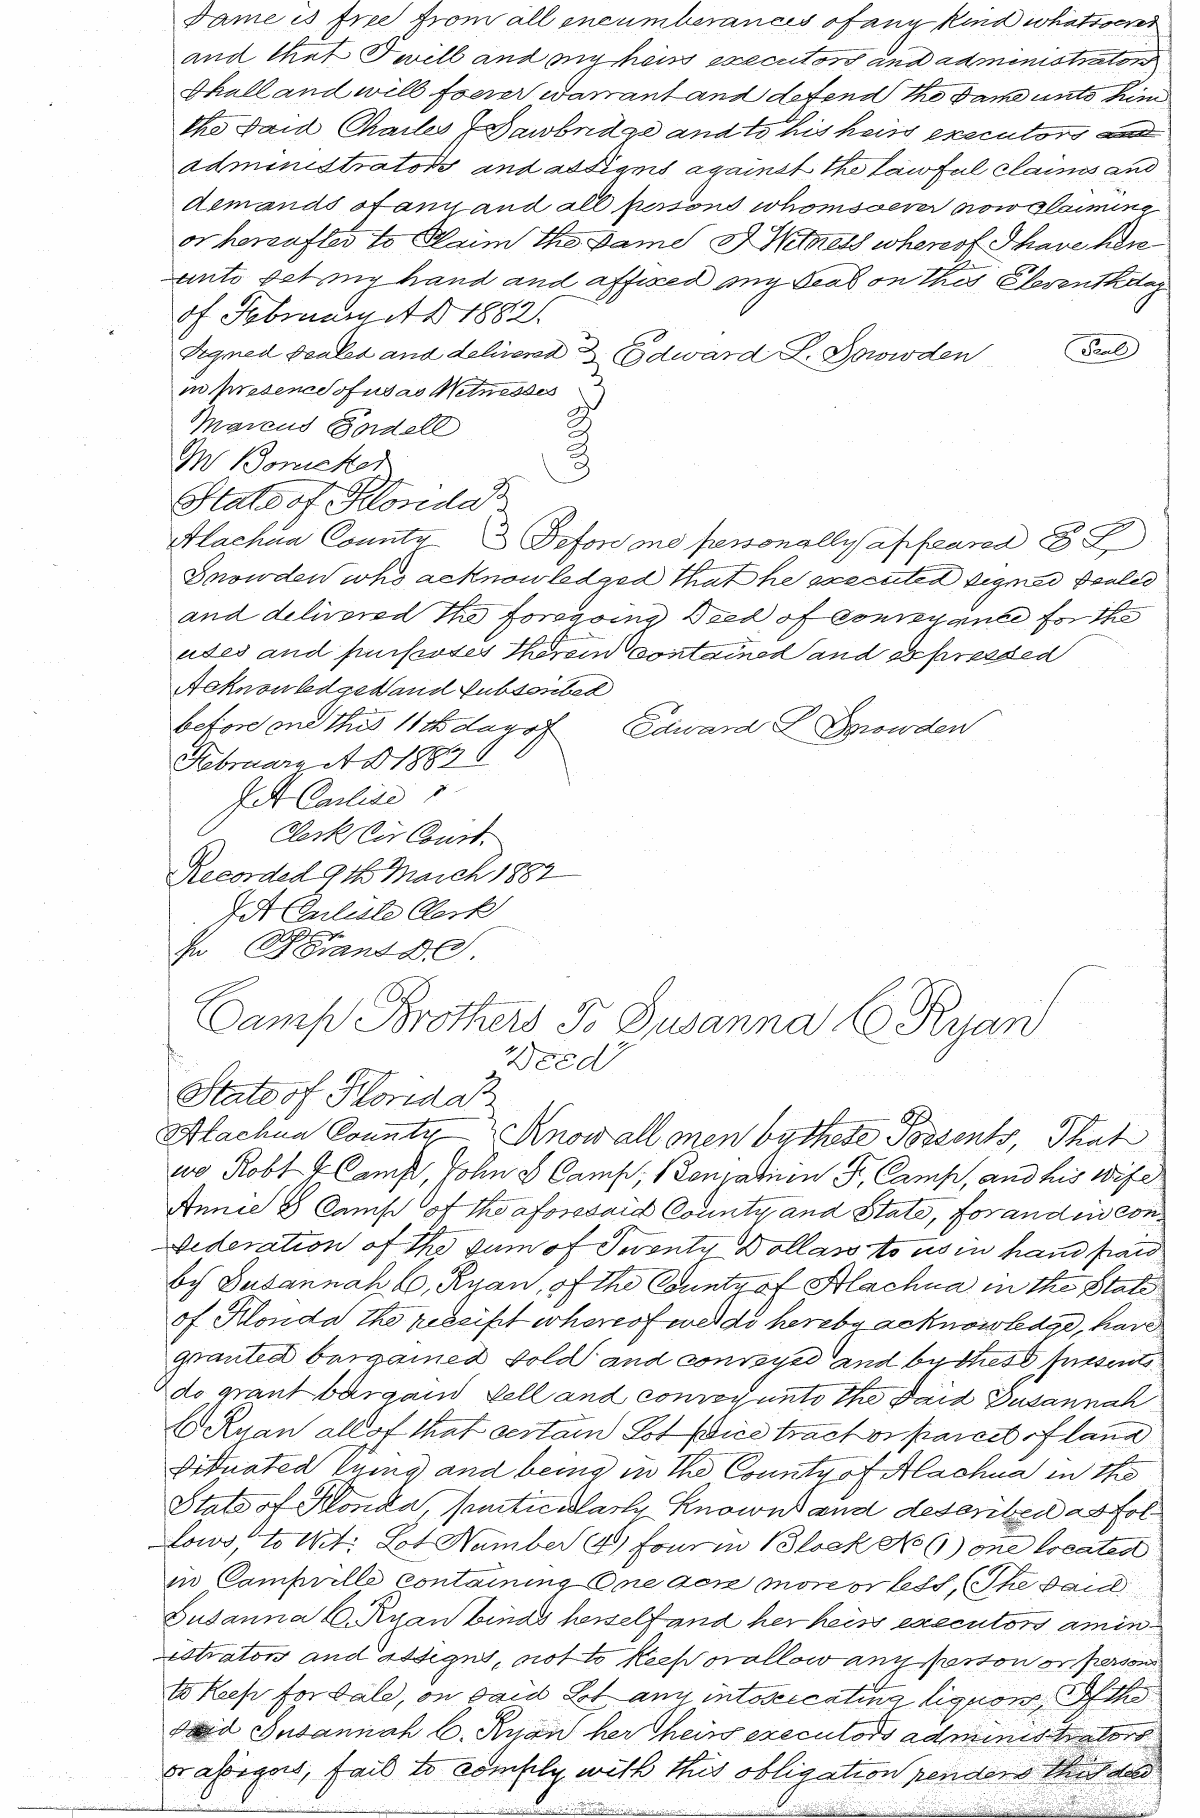 Same is free from all encumberances of any Kind whatsoever
and that I will and my heirs executors and administrators
Shall and will foever warrant and defend the Same unto him
the Said Charles J Sawbridge and to his heirs executors and
administrators and assigns against the lawful claims and
demands of any and all persons whomsoever now claiming
or hereafter to Claim the Same I Witness whereof I have here
unto Set my hand and affixed my Seal on this Eleventh day
of February A D 1882.
Signed Sealed and delivered Edward L. Snowden Seal
in presence of us as Witnesses
Marcus Endell
M Bonicker
State of Florida
Alachua County Before me personally appeared E L
Snowden who acknowledged that he executed signed Sealed
and delivered the foregoing Deed of conveyance for the
uses and purposes therein contained and expressed
Acknowledged and Subscribed
before me this 11th day of Edward L Snowden
February A D 1882
J A Carlise
Clerk Cir Court.
Recorded 9th March 1882
J A Carlisle Clerk
Evans D.C.
Camp Brothers To Susanna C Ryan
"Deed"
State of Florida
Alachua County Know all men by these Presents, That
we Robt J Camp, John S Camp, Benjamin F, Camp, and his Wife
Annie S Camp of the aforesaid County and State, for and in con-
sideration of the sum of Twenty Dollars to us in hand paid
by Susannah C, Ryan, of the County of Alachua in the State
of Florida the receipt whereof we do hereby acknowledge, have
granted bargained Sold and conveyed and by these presents
do grant bargain Sell and convey unto the Said Susannah
C Ryan all of that certain Lot peice tract or parcel of land
Situated lying and being in the County of Alachua in the
State of Florida, particularly Known and described as fol-
lows, to Wit: Lot Number (4) four in Block No (1) one located
in Campville containing One acre more or less, (The Said
Susanna C. Ryan binds herself and her heirs executors amin-
istrators and assigns, not to Keep or allow any person or persons
to Keep for Sale, on said Lot any intoxicating liquors, If the
said Susannah C. Ryan her heirs executors administrators
or assigns, fail to comply with this obligation renders this deed